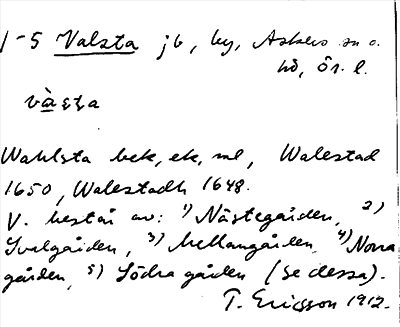 1-5 Valsta jb, by, Askers sn o.
hd, Ör. l.
vàsta
Wahlsta bek, ek, ml, Walestad
1650, Walestadh 1648.
V. består av: 1) Nästegården, 2)
Ivalgården, 3) Mellangården, 4) Norra
gården, 5) Södra gården (se dessa).
T. Ericsson 1912.